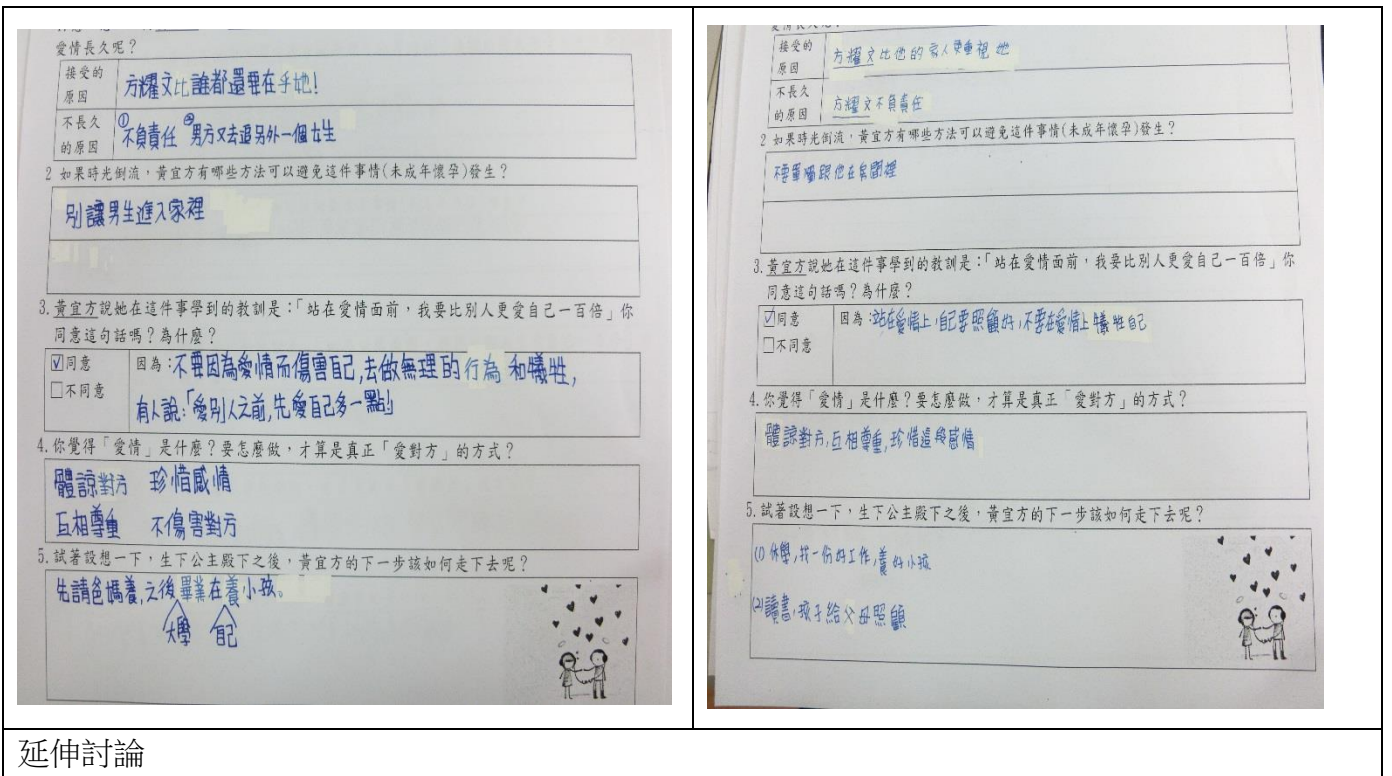 愛情長久呢?
接受的
原因
方耀文比誰都還要在乎她!
不長久
的原因
①不負責任 ②男方又去追另外一個女生
2 如果時光倒流,黃宜方有哪些方法可以避免這件事情(未成年懷孕)發生?
別讓男生進入家裡
3.黃宜方說她在這件事學到的教訓是:「站在愛情面前,我要比別人更愛自己一百倍」你
同意這句話嗎?為什麼?
☑同意
□不同意
因為:不要因為愛情而傷害自己,去做無理的行為 和犧牲,
有人說:「愛別人之前,先愛自己多一點!」
4.你覺得「愛情」是什麼?要怎麼做,才算是真正「愛對方」的方式?
體諒對方 珍惜感情
互相尊重 不傷害對方
5.試著設想一下,生下公主殿下之後,黃宜方的下一步該如何走下去呢?
先請爸媽養,之後畢業在養小孩。
大學 自己
接受的
原因
方耀文比他的家人更重視她
不長久
的原因
方耀文不負責任
2 如果時光倒流,黃宜方有哪些方法可以避免這件事情(未成年懷孕)發生?
不要單獨跟他在房間裡
3.黃宜方說她在這件事學到的教訓是:「站在愛情面前,我要比別人更愛自己一百倍」你
同意這句話嗎?為什麼?
☑同意
□不同意
因為:站在愛情上,自己要照顧好,不要在愛情上犧牲自己
4.你覺得「愛情」是什麼?要怎麼做,才算是真正「愛對方」的方式?
體諒對方,互相尊重,珍惜這段感情
5.試著設想一下,生下公主殿下之後,黃宜方的下一步該如何走下去呢?
(1) 休學,找一份好工作,養好小孩
(2)讀書,孩子給父母照顧
延伸討論